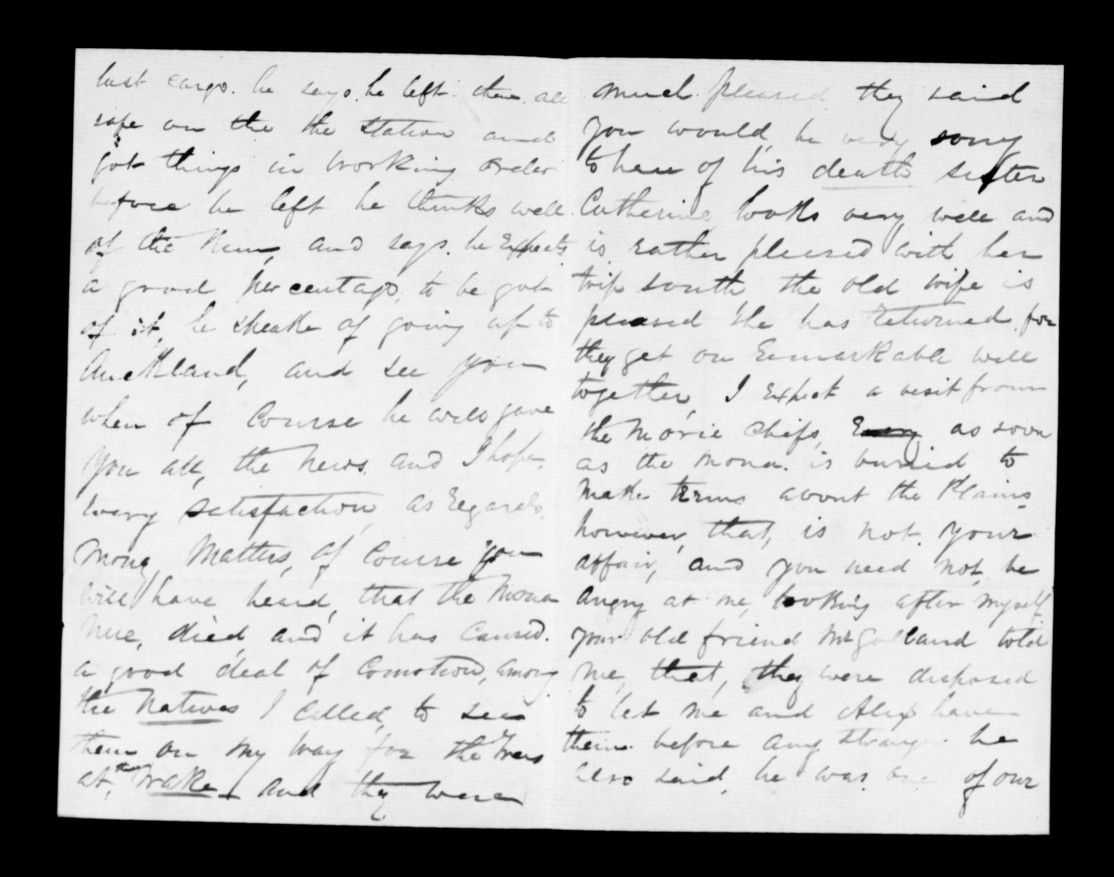 last cargo. he says he left them all
safe on the the station and
got things in working order
before he left he thinks well
of the Run, and says. he Expects
a good per centage, to be got
of it, he speaks of going up to
Auckland, and see you
when of Course he will gave
you all, the News. and I hope.
every satisfaction, as Regards.
Mony, Matters, of Course you
will have heard, that the Mona
Nue, died, and it has Caused.
a good deal of Comotion, among
the Natives I Called, to see
them on my way for the Trees
at, the Wake. and thy were
much pleased they said
you would, be very sorry
to hear of his death sister
Catherine looks very well and
is, rather pleased with her
trip south the old wife is
pleased She has Returned, for
they get on Remarkable well
together, I Expect a visit from
the Morie Chifs, as soon
as the Mona. is burried to
Make terms about the Plains,
however, that, is not your
affair, and you need not be
Angry at me, looking after myself
your old friend told
me, that, they were disposed
to let me and Alex have
them. before any he
also said, he was one of our